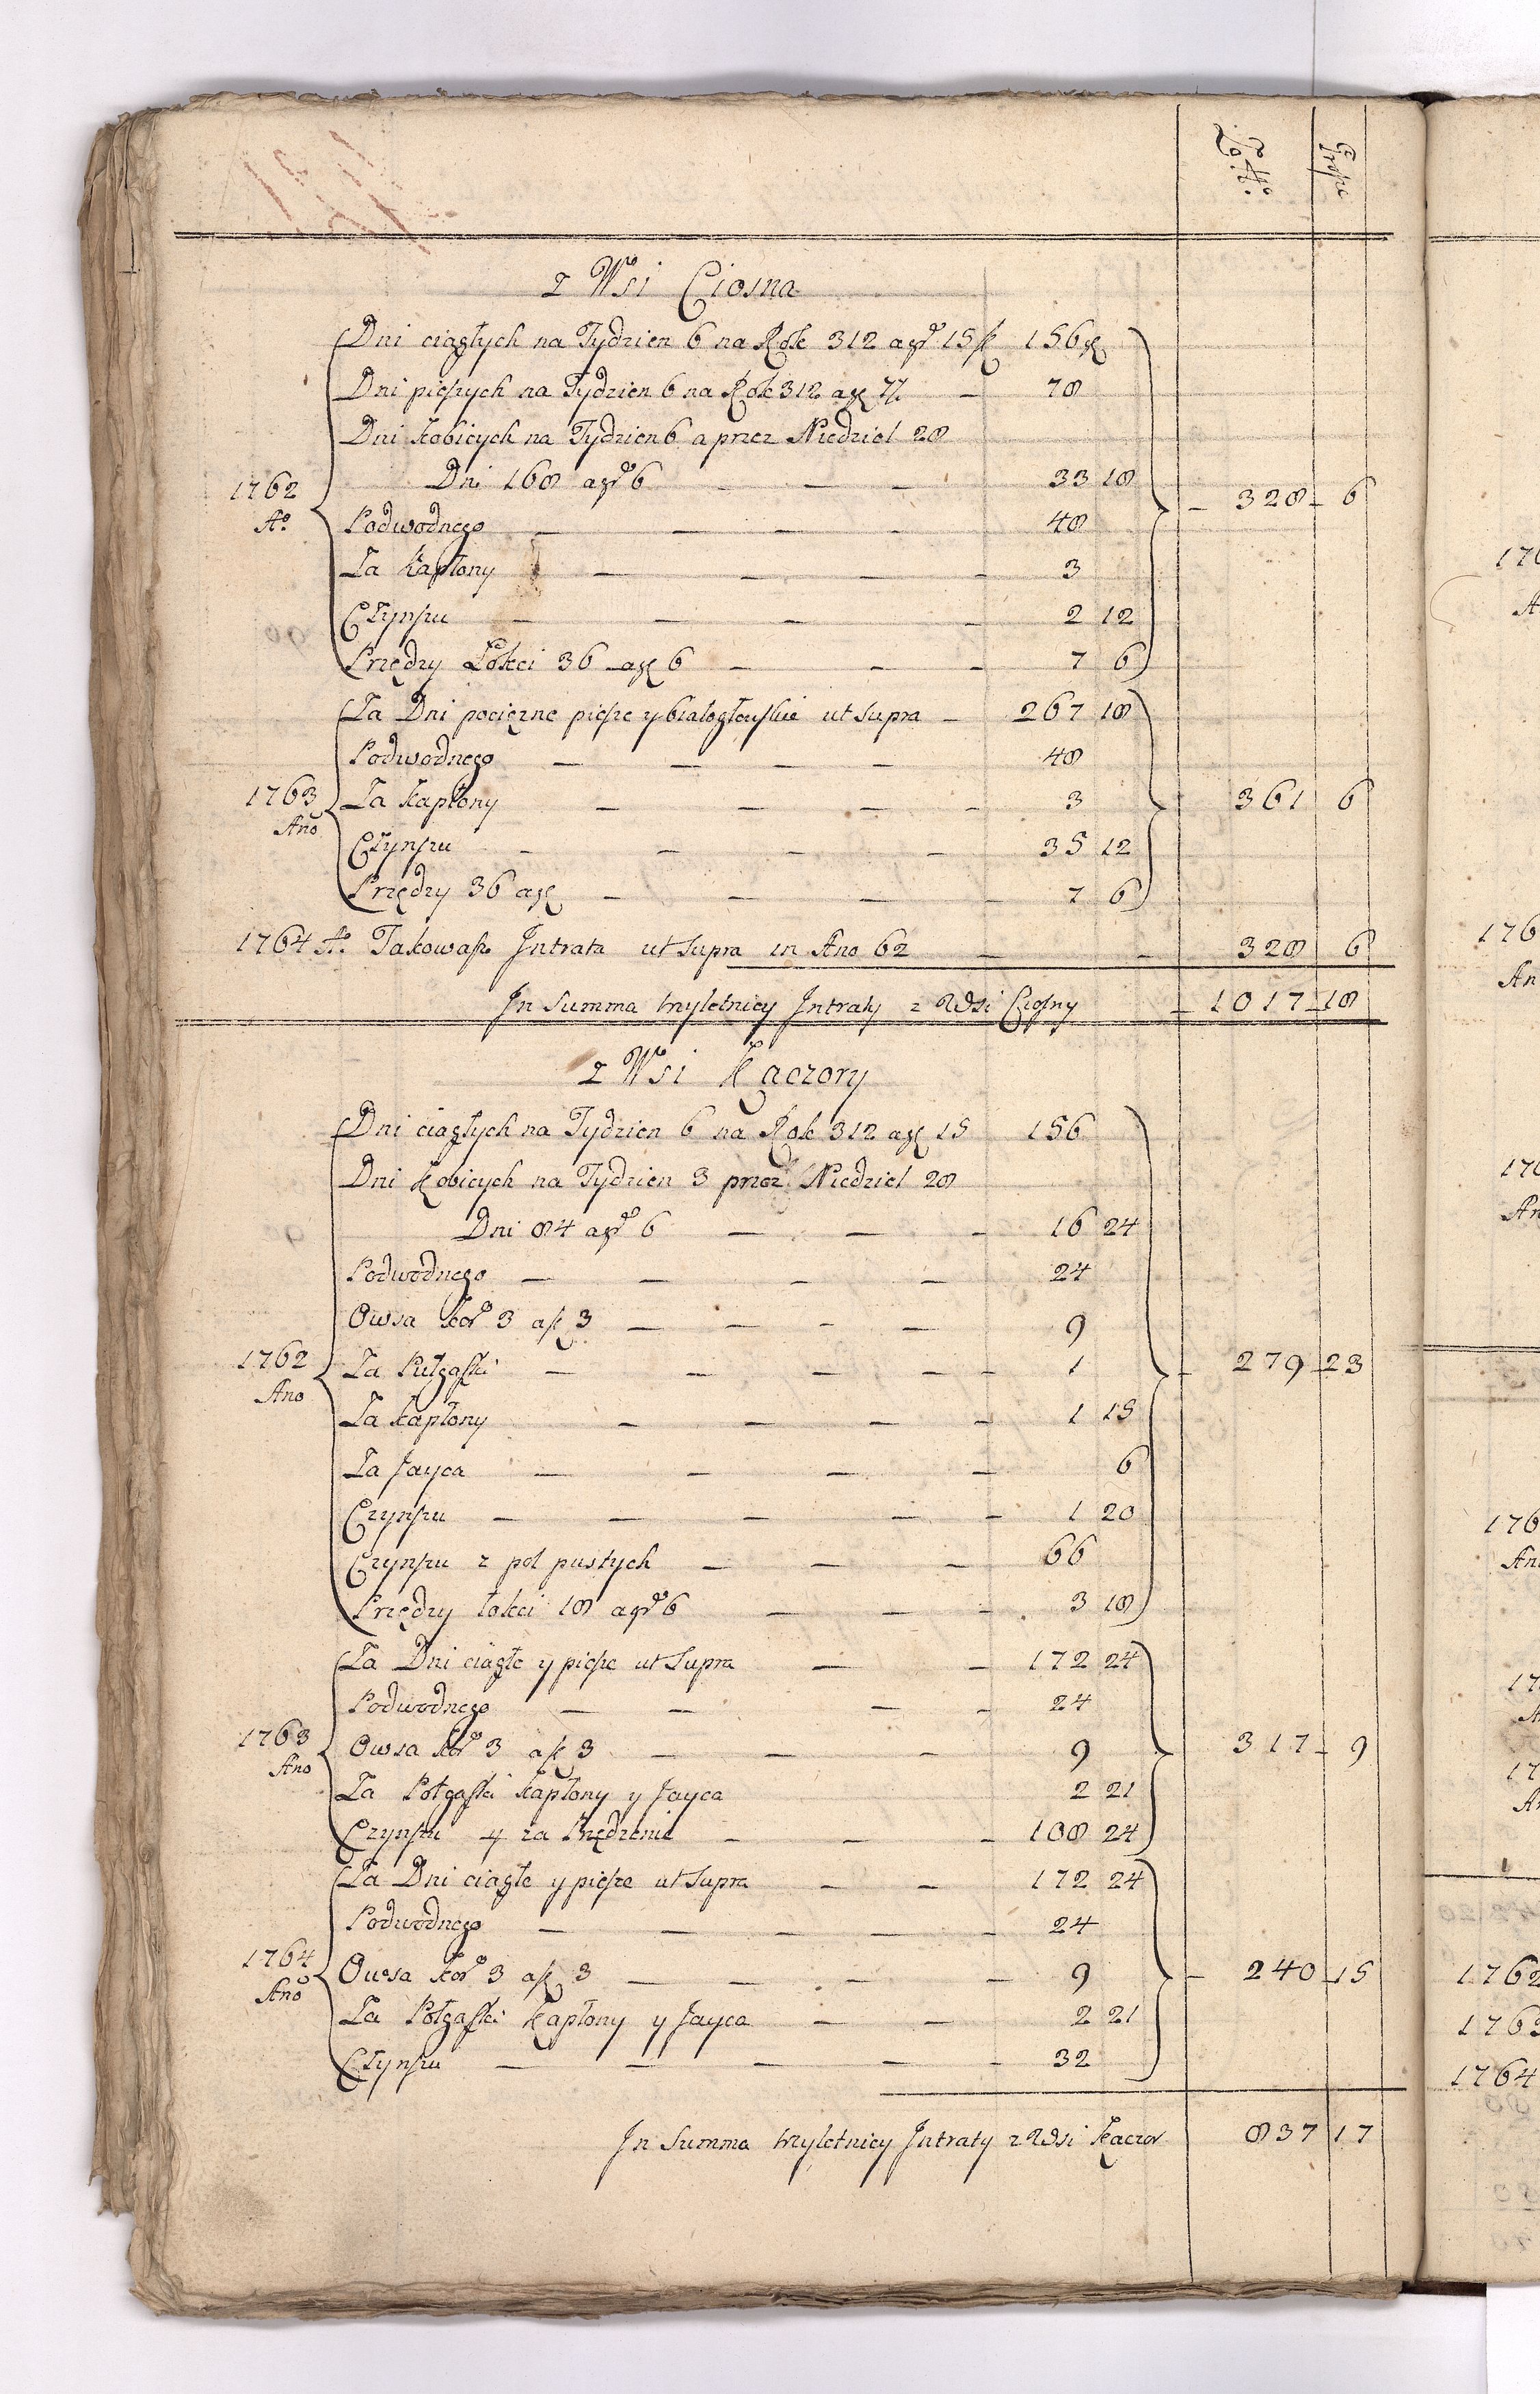 Zło: Grosze
z Wsi Ciosna
Dni ciągłych na Tydzien 6 na Rok 312 a gr 15 fl 156 gr
Dni pieszych na Tydzien 6 na Rok 312 a gr 7½ — 78
Dni kobicych na Tydzien 6 a przez Niedziel 28
Dni 168 a gr 6 — — — 33 18
1762 Ao
Podwodnego — — — — — 48
— 328 — 6
Za Kapłony — — — — — 3
Czynszu — — — — — 2 12
Przędzy Łokci 36 a gr 6 — — — 7 6
Za Dni pociężne piesze y białogłoskie ut supra — 267 18
Podwodnego — — — — 48
1763 Ano
Za kapłony — — — — — 3
361 6
Czynszu — — — — 35 12
Przędzy 36 a gr — — — — 7 6
1764 Ao Takowasz Intrata ut supra in Ano 62 — — 328 6
In Summa trzyletniey Intraty z Wsi Ciosny — 1017 — 18
z Wsi Kaczory
Dni ciągłych na Tydzien 6 na Rok 312 a gr 15 156
Dni kobicych na Tydzien 3 przez Niedziel 28
Dni 84 a gr 6 — — — 16 24
Podwodnego — — — — 24
Owsa kor 3 a fl 3 — — — — 9
1762 Ano
Za Pułgąski — — — — — 1
— 279 — 23
Za kapłony — — — — 1 15
Za Jayca — — — — 6
Czynszu — — — — — 1 20
Czynszu z pol pustych — — — 66
Przędzy łokci 18 a gr 6 — — — 3 18
Za Dni ciągłe y piesze ut supra — — 172 24
Podwodnego — — — — 24
1763 Ano
Owsa kor 3 a fl 3 — — — 9
317 — 9
Za Połgąski kapłony y Jayca 2 21
Czynszu y za Przędzenie — — — 108 24
Za Dni ciągłe y piesze ut supra — — 172 24
Podwodnego — — — — — 24
1764 Ano
Owsa kor 3 a fl 3 — — — — 9
— 240 — 15
Za Połgąski kapłony y Jayca — — 2 21
Czynszu — — — — — 32
In Summa trzyletniey Intraty z Wsi Kaczor 837 17
1762
1763
1764